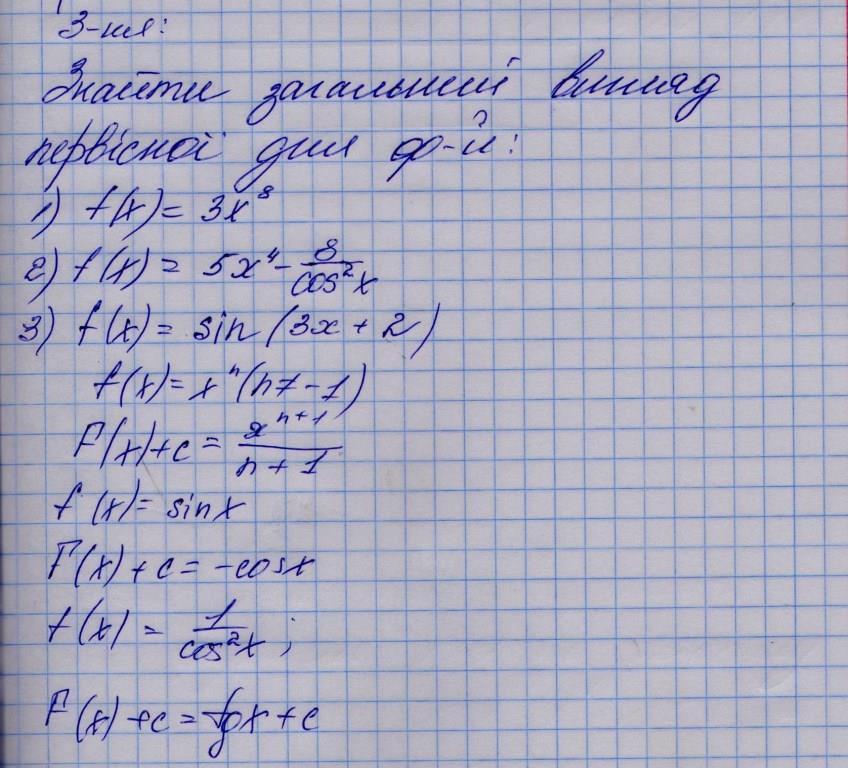 З-ня:
Знайти загальний вигляд
первісної для ф-й:
1) f(x) = 3x⁸
2) f(x) = 5x⁴ - 8/cos²x
3) f(x) = sin (3x + 2)
f(x) = xⁿ (n ≠ -1)
F(x)+c = xⁿ⁺¹/n+1
f(x) = sinx
F(x) + c = -cosx
f(x) = 1/cos²x ;
F(x) + c = tgx + c